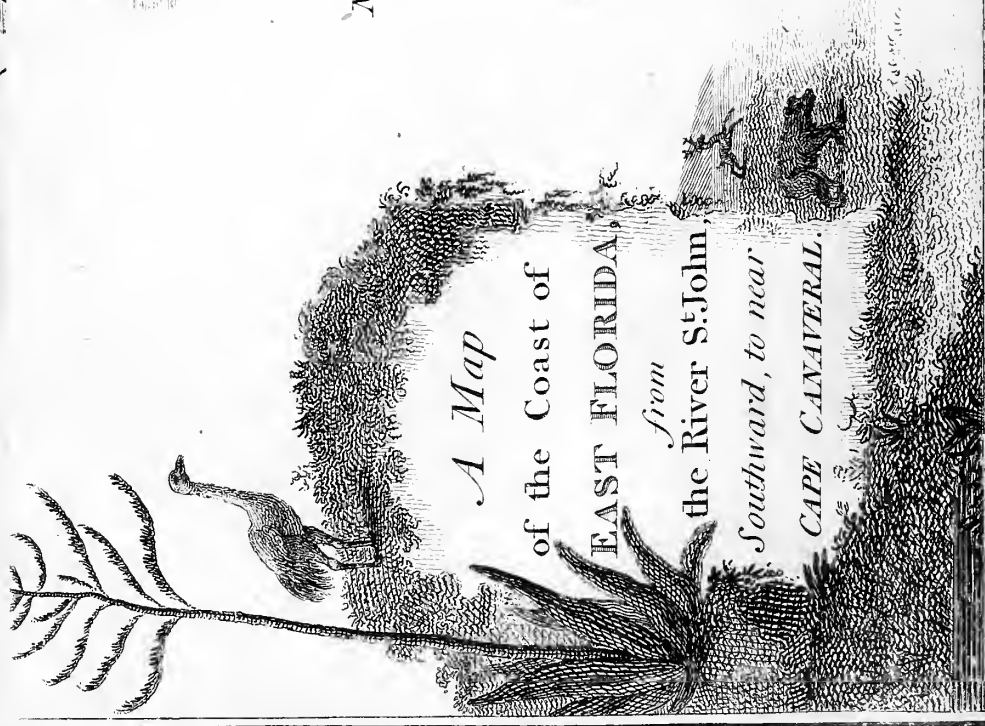 A Map
of the Coast of
EAST FLORIDA,
from
the River St. John,
Southward, to near
CAPE CANAVERAL.